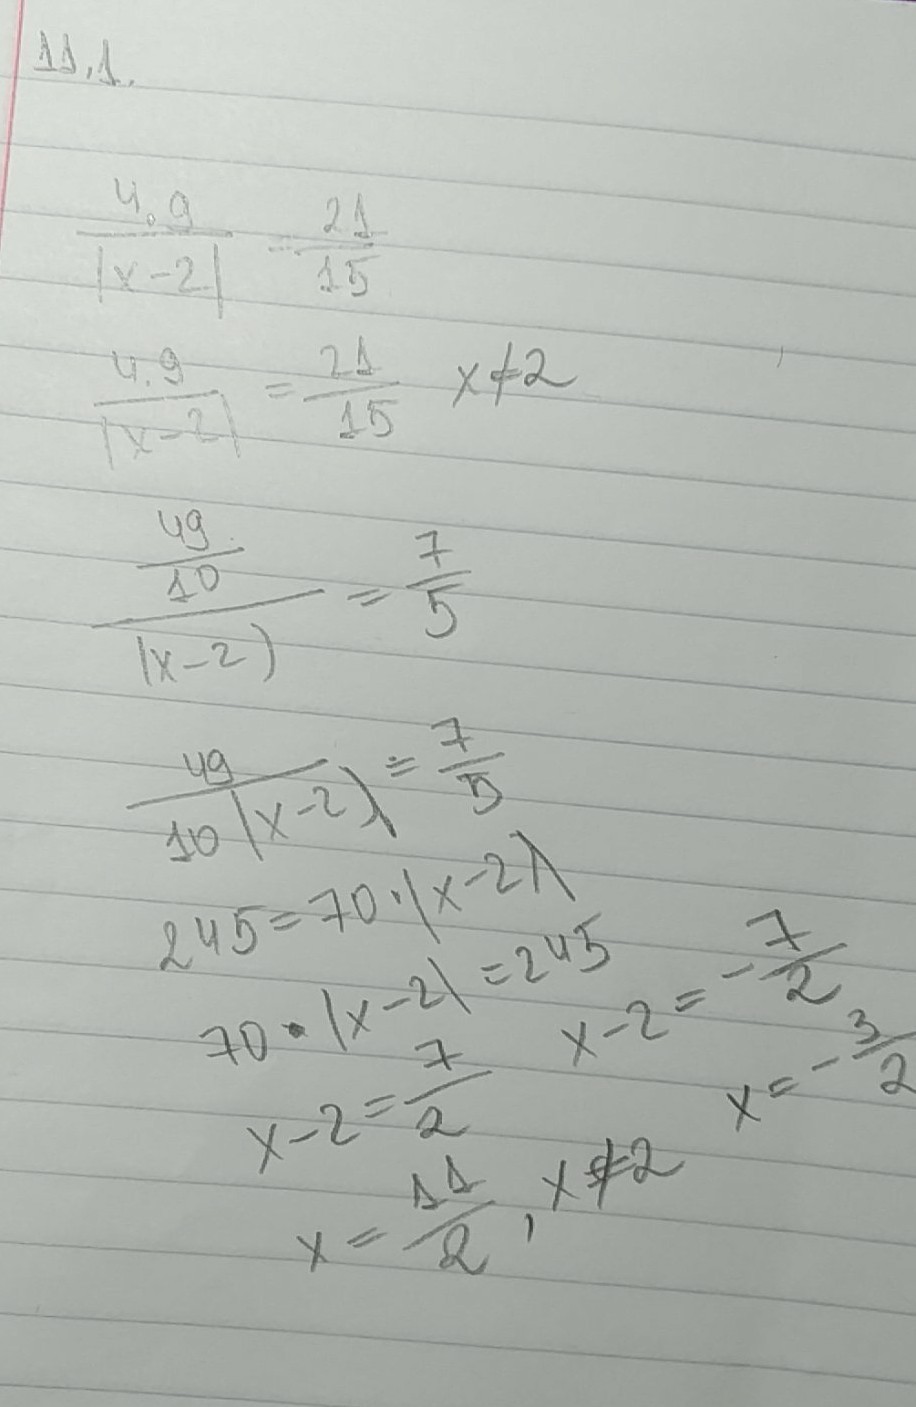 11.1.
4.9/|x-2| = 21/15
4.9/|x-2| = 21/15 x≠2
(49/10)/|x-2| = 7/5
49/(10|x-2|) = 7/5
245=70·|x-2|
70·|x-2|=245
x-2=7/2 x-2=-7/2
x=11/2, x≠2 x=-3/2